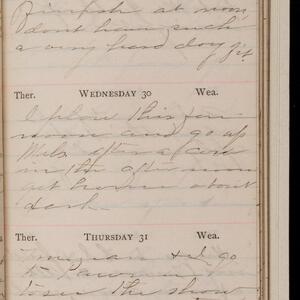 Finish at noon
dont have such
a very hard day yet
Ther. WEDNESDAY 30 Wea.
I plow this fore
noon and go up
Mels after a cow
in the after noon
get home about
dark.
Ther. THURSDAY 31 Wea.
and I go
to
to see the show